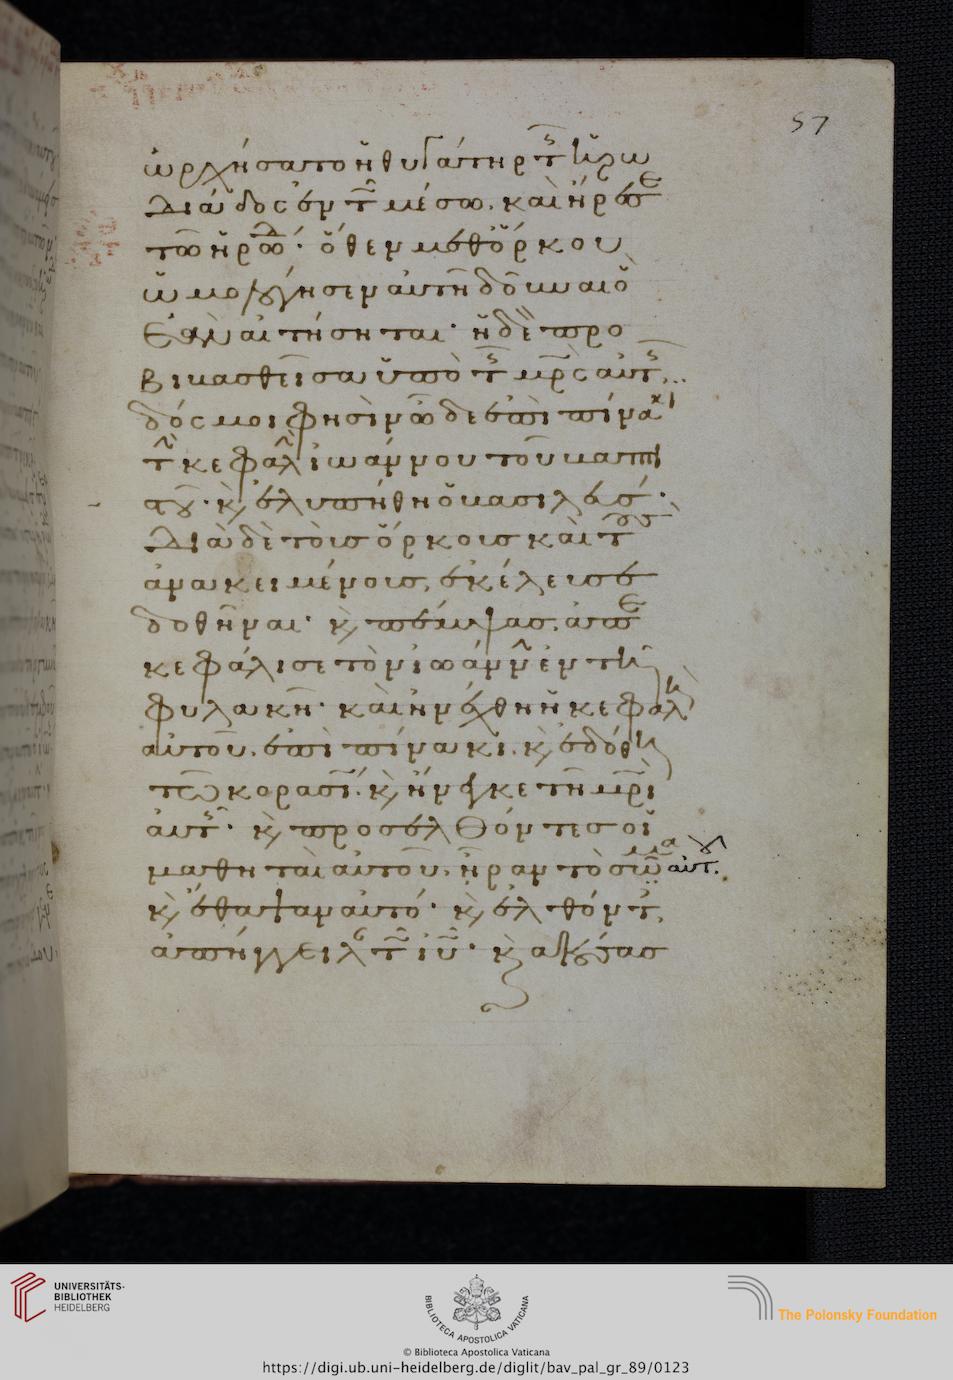 57
ὠρχήσατο ἡ θυγάτηρ τῆς Ἡρω
διάδος ἐν τῷ μέσω, καὶ ἤρεσε
τῶ ἡρώδ· ὅθεν μεθ' ὅρκου
ὡμολόγησεν αὐτῇ δοῦναι ὃ
ἐὰν αἰτήσηται· ἡ δὲ προ
βιβασθεῖσα ὑπὸ τῆς μρ̅ς αὐτῆς
δός μοι φησὶν ὧδε ἐπὶ πίνακι
τὴν κεφαλὴν ἰωάννου τοῦ βαπτι
στοῦ· κ, ἐλυπήθη ὁ βασιλεύς·
διὰ δὲ τοὺς ὅρκους καὶ τοὺς
ἀνακειμένους, ἐκέλευσε
δοθῆναι· κ, πέμψας, ἀπε
κεφάλισε τὸν ἰωάννην ἐν τῇ
φυλακῇ· καὶ ἠνέχθη ἡ κεφαλὴ
αὐτοῦ, ἐπὶ πίνακι, κ, ἐδόθη
τῶ κορασίω· κ, ἤνεγκε τῇ μρ̅ὶ
αὐτῆς· κ, προσελθόντες οἱ
μαθηταὶ αὐτοῦ, ἦραν τὸ σῶμα αὐτοῦ.
κ, ἔθαψαν αὐτό· κ, ἐλθόντες,
ἀπήγγειλαν τῶ ἰυ̅· κ, ἀκούσας
UNIVERSITÄTS-
BIBLIOTHEK
HEIDELBERG
BIBLIOTECA APOSTOLICA VATICANA
The Polonsky Foundation
© Biblioteca Apostolica Vaticana
https://digi.ub.uni-heidelberg.de/diglit/bav_pal_gr_89/0123